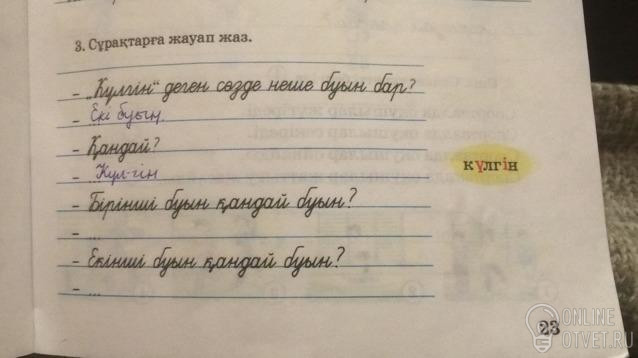 3. Сұрақтарға жауап жаз.
- „Күлгін" деген сөзде неше буын бар?
- Екі буын.
- Қандай?
- Күл-гін
күлгін
- Бірінші буын қандай буын?
- ...
- Екінші буын қандай буын?
- ...
23
ONLINE
OTVET.RU